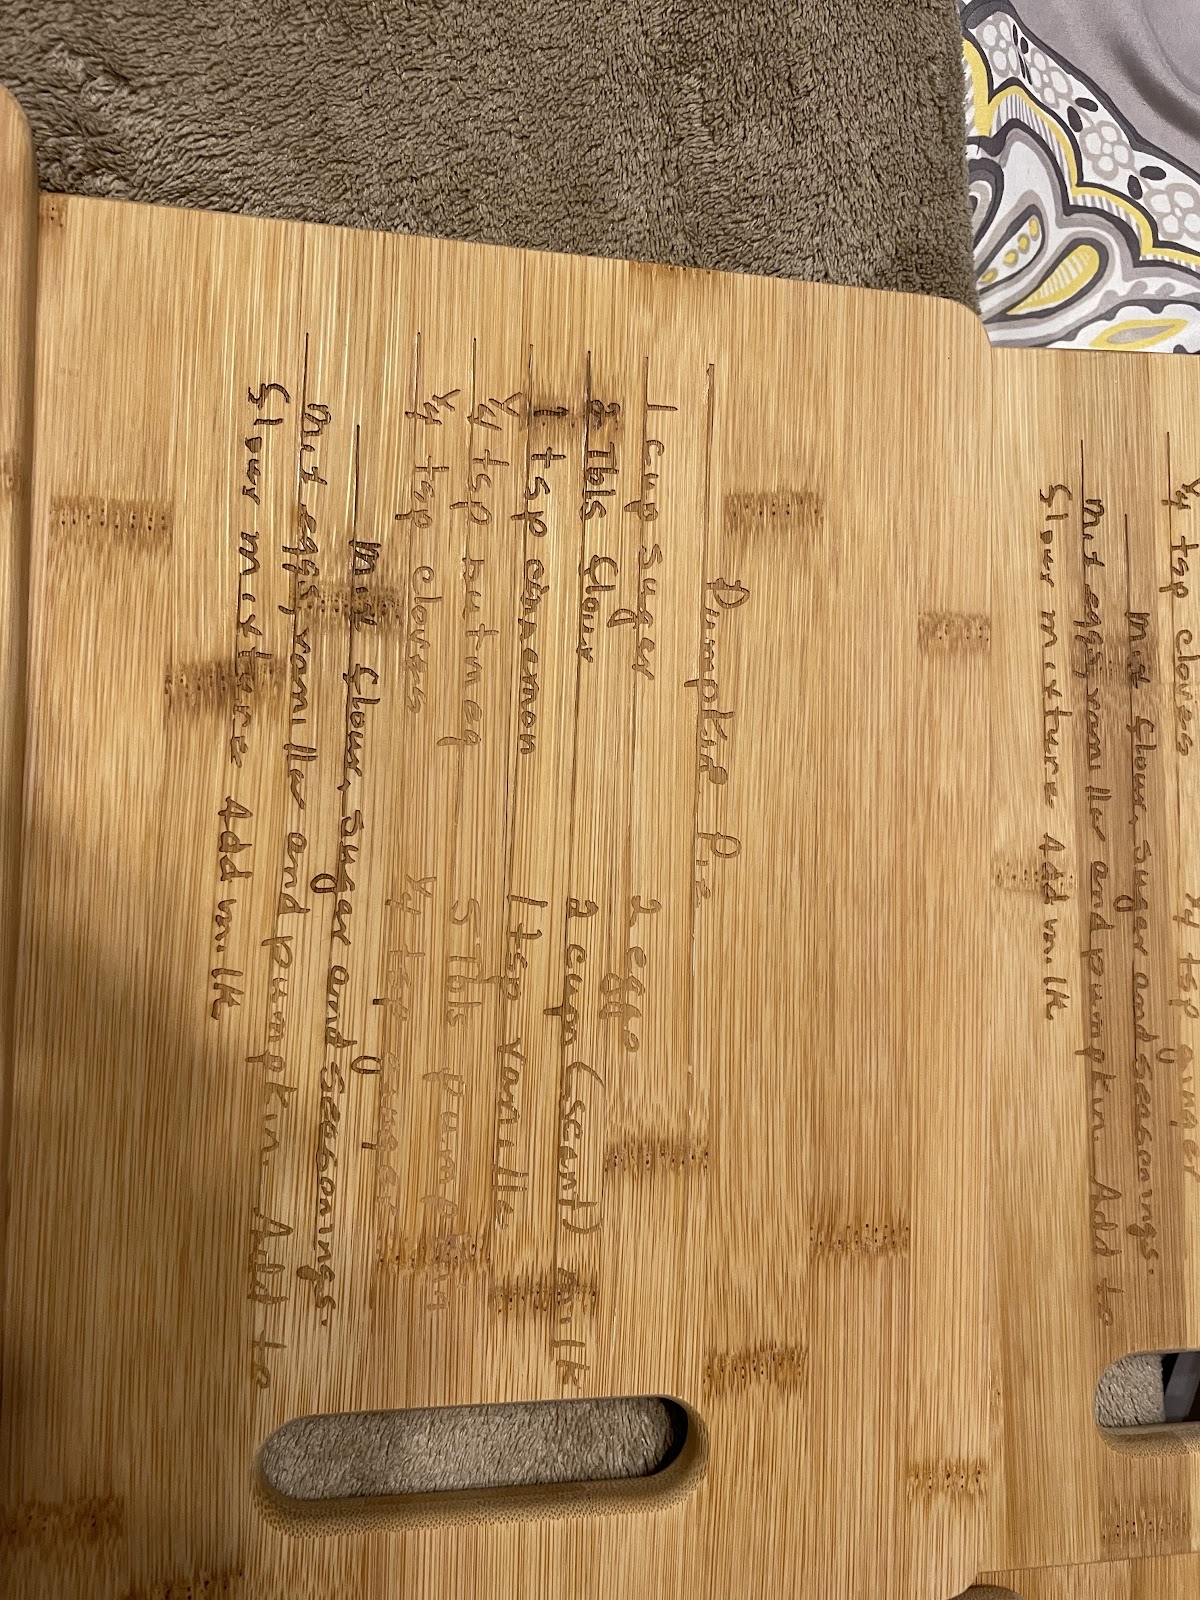 Pumpkin Pie
1 cup Suger 2 eggs
2 Tbls flour 2 cups (scant) milk
1 tsp cinnemon 1 tsp vanilla
1/4 tsp nutmeg 5 Tbls pumpkin
1/4 tsp cloves 1/4 tsp ginger
Mix flour, sugar and seasonings.
Mix eggs, vanilla and pumpkin. Add to
flour mixture Add milk
1/4 tsp cloves 1/4 tsp ginger
Mix flour, suger and seasonings.
Mix eggs, vanilla and pumpkin. Add to
flour mixture Add milk